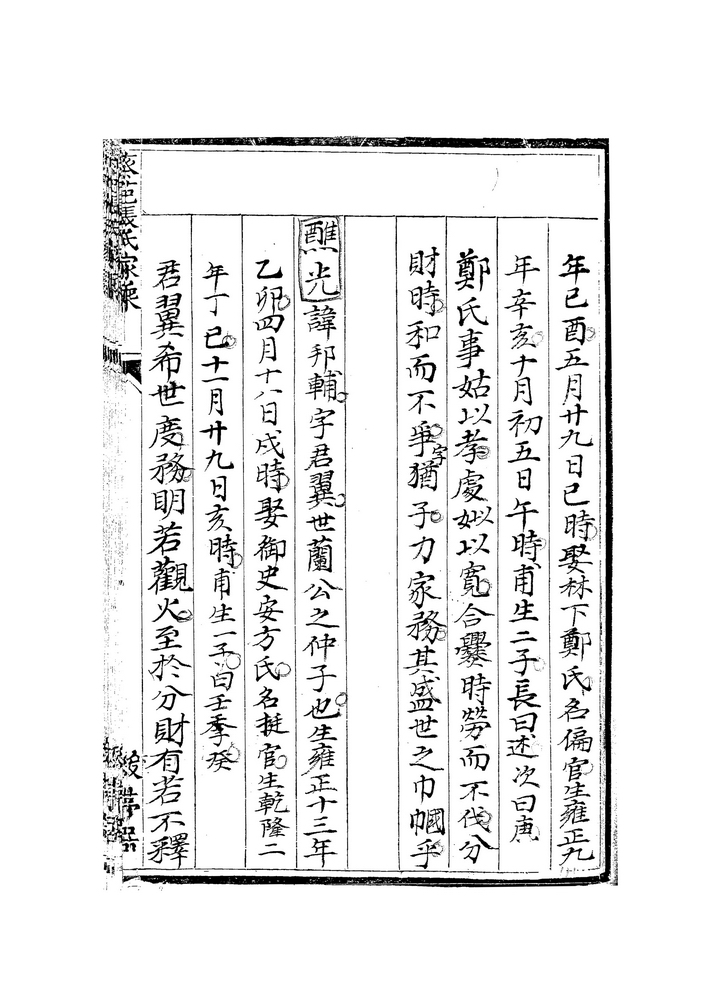 年己酉五月廿九日巳時娶林下鄭氏名偏官生雍正九
年辛亥十月初五日午時甫生二子長曰述次曰庚
鄭氏事姑以孝處姒以寬合爨時勞而不伐分
財時和而不爭字猶子力家務其盛世之巾幗乎
醮光諱邦輔字君翼世蘭公之仲子也生雍正十三年
乙卯四月十八日戌時娶御史安方氏名挺官生乾隆二
年丁巳十一月廿九日亥時甫生一子曰壬季癸
君翼希世度務明若觀火至於分財有若不釋
張氏家乘